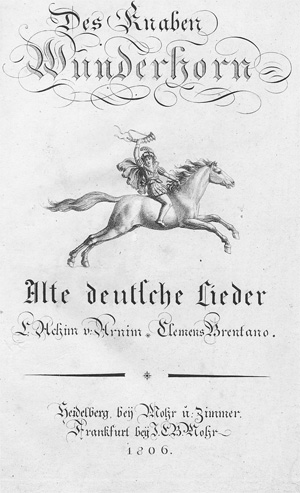 Des Knaben
Wunderhorn
Alte deutſche Lieder
L. Achim v. Arnim. Clemens Brentano.
Heidelberg, beÿ Mohr u. Zimmer.
Frankfurt beÿ J.C.B. Mohr
1806.